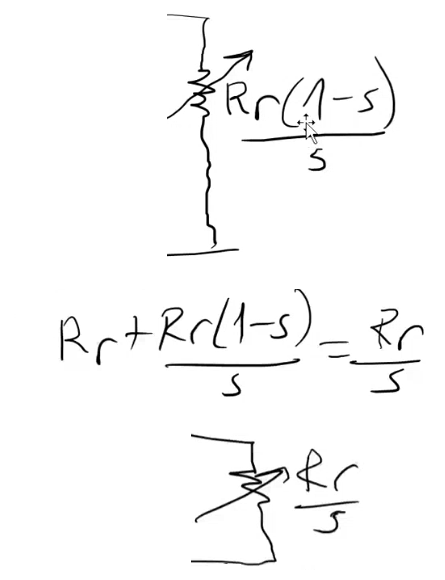 Rr(1-s)
s
Rr+Rr(1-s)=Rr
s s
Rr
s